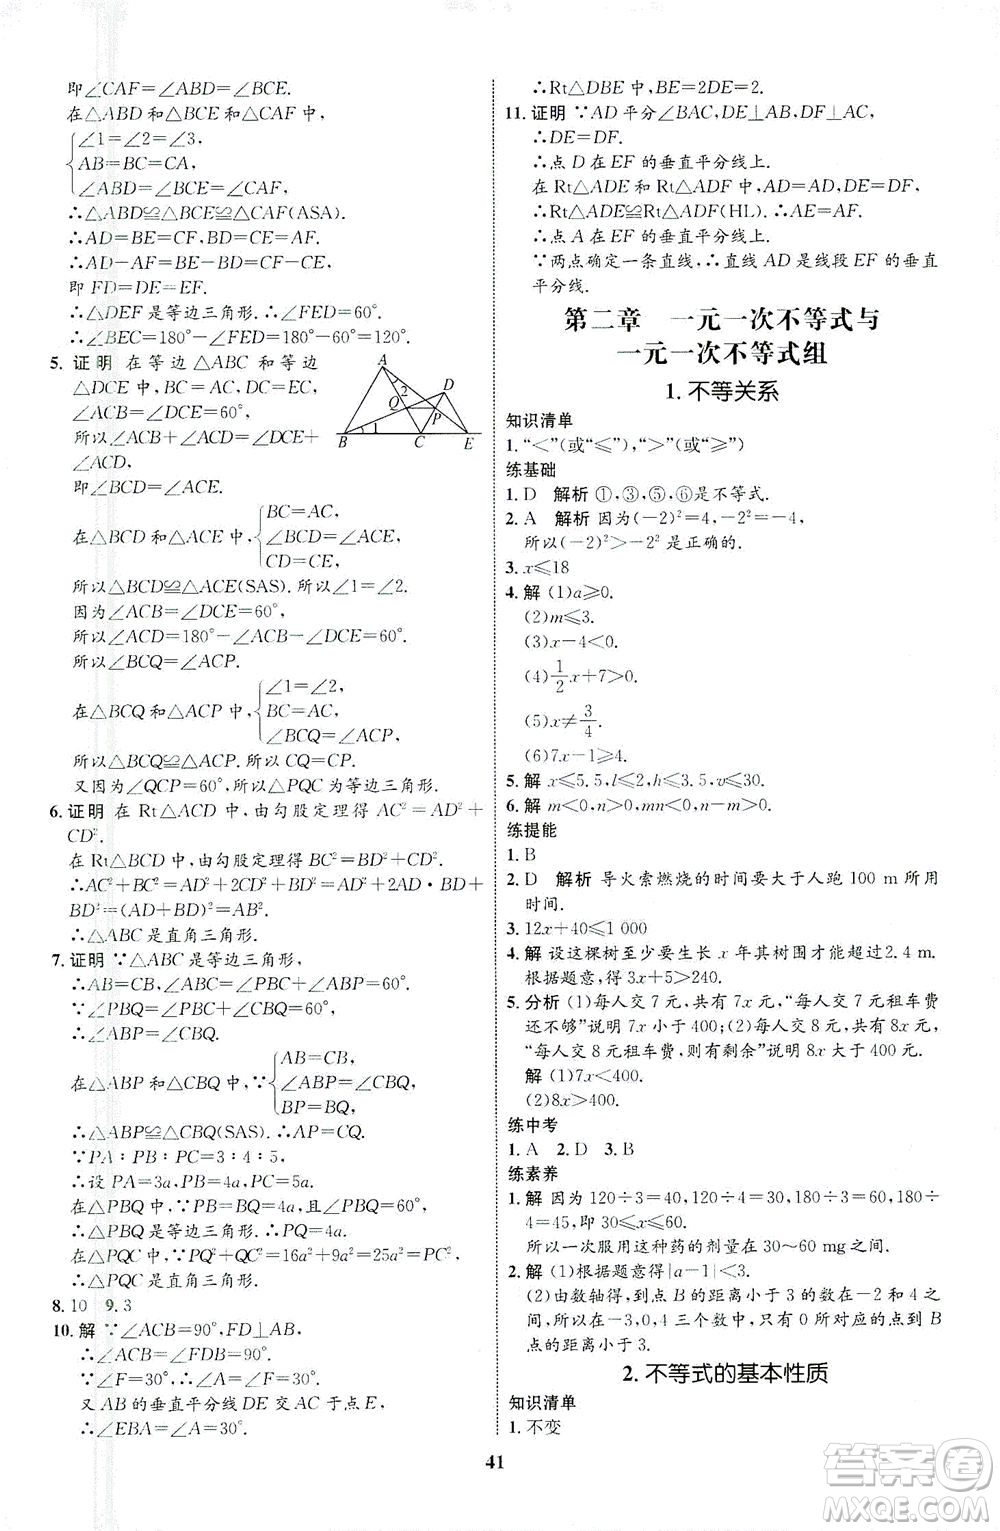 即∠CAF=∠ABD=∠BCE.
在△ABD和△BCE和△CAF中,
∠1=∠2=∠3,
AB=BC=CA,
∠ABD=∠BCE=∠CAF,
∴△ABD≌△BCE≌△CAF(ASA).
∴AD=BE=CF,BD=CE=AF.
∴AD-AF=BE-BD=CF-CE.
即FD=DE=EF.
∴△DEF是等边三角形.∴∠FED=60°.
∴∠BEC=180°-∠FED=180°-60°=120°.
5.证明 在等边△ABC和等边
△DCE中,BC=AC,DC=EC,
∠ACB=∠DCE=60°,
所以∠ACB+∠ACD=∠DCE+
∠ACD.
即∠BCD=∠ACE.
A
2
D
Q
P
1
B
C
E
在△BCD和△ACE中,
BC=AC,
∠BCD=∠ACE,
CD=CE,
所以△BCD≌△ACE(SAS).所以∠1=∠2.
因为∠ACB=∠DCE=60°,
所以∠ACD=180°-∠ACB-∠DCE=60°.
所以∠BCQ=∠ACP.
在△BCQ和△ACP中,
∠1=∠2,
BC=AC,
∠BCQ=∠ACP,
所以△BCQ≌△ACP.所以CQ=CP.
又因为∠QCP=60°,所以△PQC是等边三角形.
6.证明 在Rt△ACD中,由勾股定理得AC²=AD²+
CD².
在Rt△BCD中,由勾股定理得BC²=BD²+CD².
∴AC²+BC²=AD²+2CD²+BD²=AD²+2AD·BD+
BD²=(AD+BD)²=AB².
∴△ABC是直角三角形.
7.证明 ∵△ABC是等边三角形,
∴AB=CB,∠ABC=∠PBC+∠ABP=60°.
∵∠PBQ=∠PBC+∠CBQ=60°,
∴∠ABP=∠CBQ.
在△ABP和△CBQ中,∵
AB=CB,
∠ABP=∠CBQ,
BP=BQ,
∴△ABP≌△CBQ(SAS).∴AP=CQ.
∵PA∶PB∶PC=3∶4∶5,
∴设PA=3a,PB=4a,PC=5a.
在△PBQ中,∵PB=BQ=4a,且∠PBQ=60°,
∴△PBQ是等边三角形.∴PQ=4a.
在△PQC中,∵PQ²+QC²=16a²+9a²=25a²=PC²,
∴△PQC是直角三角形.
8.10 9.3
10.解 ∵∠ACB=90°,FD⊥AB,
∴∠ACB=∠FDB=90°.
∵∠F=30°,∴∠A=∠F=30°.
又AB的垂直平分线DE交AC于点E,
∴∠EBA=∠A=30°.
∴Rt△DBE中,BE=2DE=2.
11.证明 ∵AD平分∠BAC,DE⊥AB,DF⊥AC,
∴DE=DF.
∴点D在EF的垂直平分线上.
在Rt△ADE和Rt△ADF中,AD=AD,DE=DF,
∴Rt△ADE≌Rt△ADF(HL).∴AE=AF.
∴点A在EF的垂直平分线上.
∵两点确定一条直线,∴直线AD是线段EF的垂直
平分线.
第二章 一元一次不等式与
一元一次不等式组
1.不等关系
知识清单
1.“<”(或“≤”),“>”(或“≥”)
练基础
1.D 解析 ①,③,⑤,⑥是不等式.
2.A 解析 因为(-2)²=4,-2²=-4,
所以(-2)²>-2²是正确的.
3.x≤18
4.解 (1)a≥0.
(2)m≤3.
(3)x-4<0.
(4)1/2x+7>0.
(5)x≠3/4.
(6)7x-1≥4.
5.解 x≤5.5,l≤2,h≤3.5,v≤30.
6.解 m<0,n>0,mn<0,n-m>0.
练提能
1.B
2.D 解析 导火索燃烧的时间要大于人跑100 m所用
时间.
3.12x+40≤1 000
4.解 设这棵树至少要生长x年其树围才能超过2.4 m.
根据题意,得3x+5>240.
5.分析 (1)每人交7元,共有7x元,“每人交7元租车费
还不够”说明7x小于400;(2)每人交8元,共有8x元,
“每人交8元租车费,则有剩余”说明8x大于400元.
解 (1)7x<400.
(2)8x>400.
练中考
1.A 2.D 3.B
练素养
1.解 因为120÷3=40,120÷4=30,180÷3=60,180÷
4=45,即30≤x≤60.
所以一次服用这种药的剂量在30~60 mg之间.
2.解 (1)根据题意得|a-1|<3.
(2)由数轴得,到点B的距离小于3的数在-2和4之
间,所以在-3,0,4三个数中,只有0所对应的点到点
B的距离小于3.
2.不等式的基本性质
知识清单
1.不变
41
答案圈
MXQE.COM